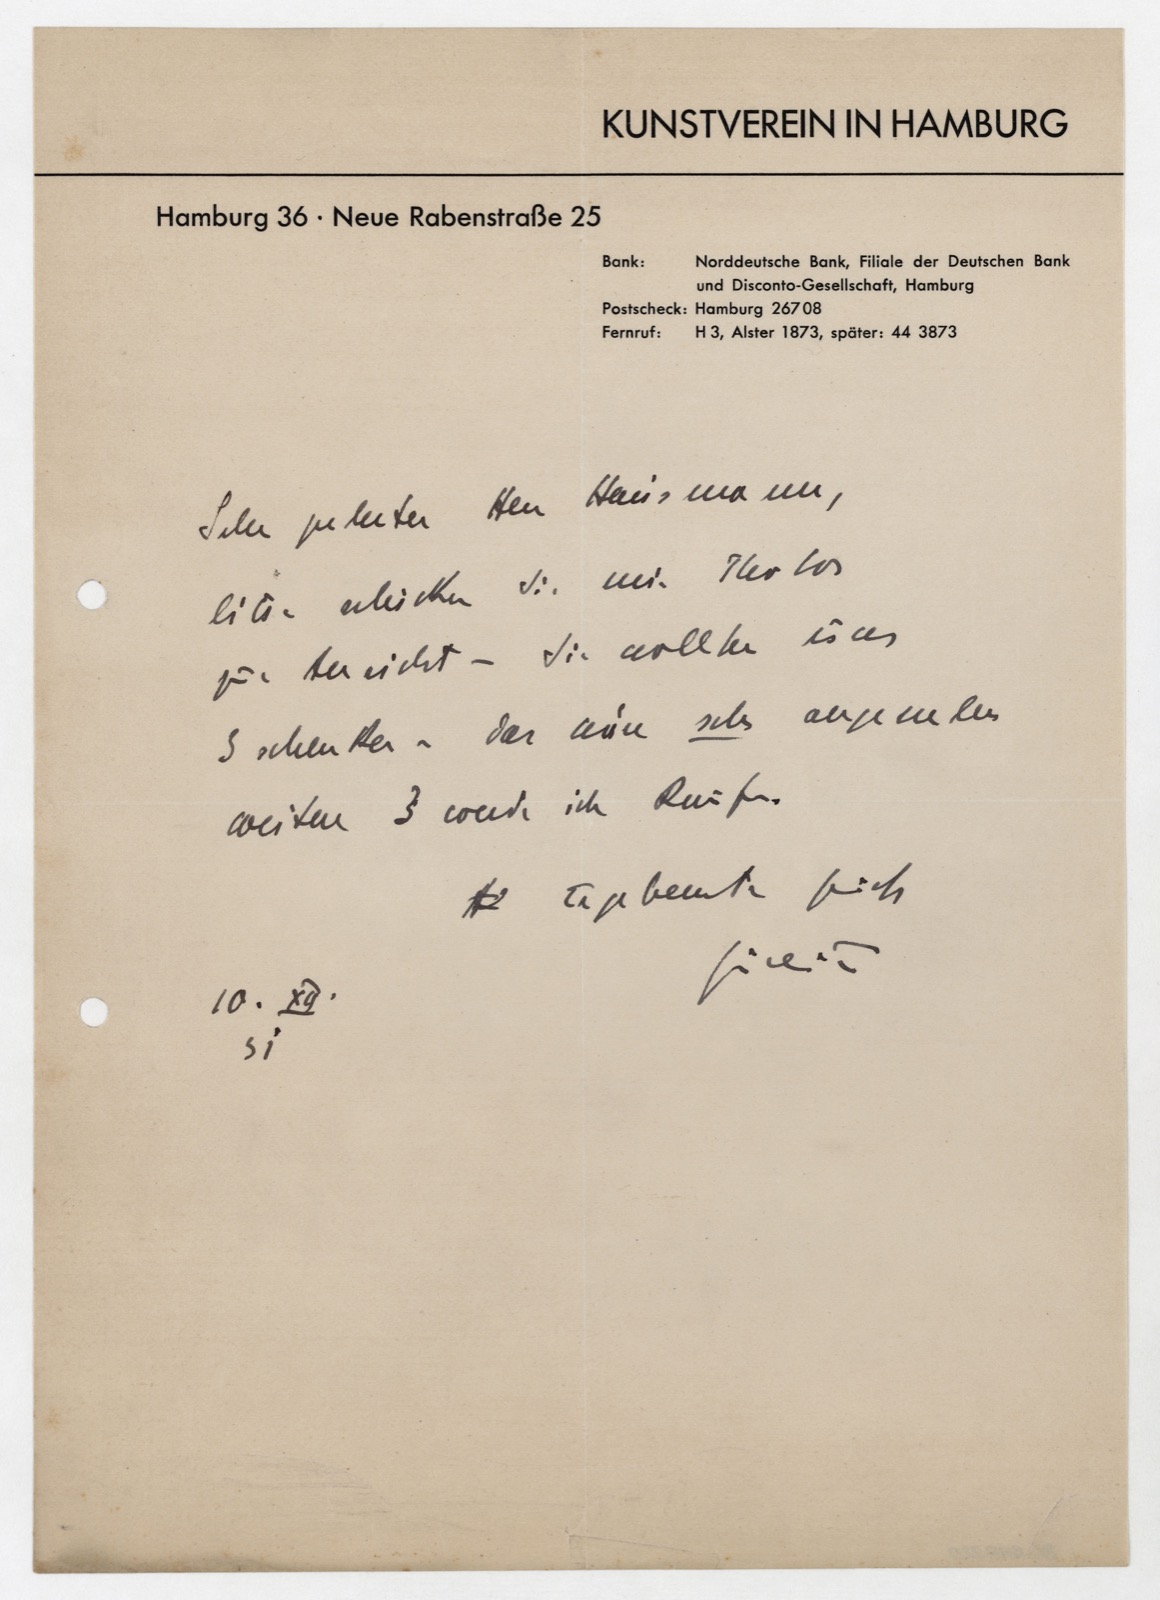 KUNSTVEREIN IN HAMBURG
Hamburg 36 · Neue Rabenstraße 25
Bank: Norddeutsche Bank, Filiale der Deutschen Bank
und Disconto-Gesellschaft, Hamburg
Postscheck: Hamburg 26708
Fernruf: H 3, Alster 1873, später: 44 3873
Sehr geehrter Herr Hausmann,
bitte schicken Sie mir Photos
zur Ansicht – Sie wollten uns
3 schenken – das wäre sehr angenehm
weitere 3 werde ich kaufen.
Ihr ergebenster
10. XII.
31